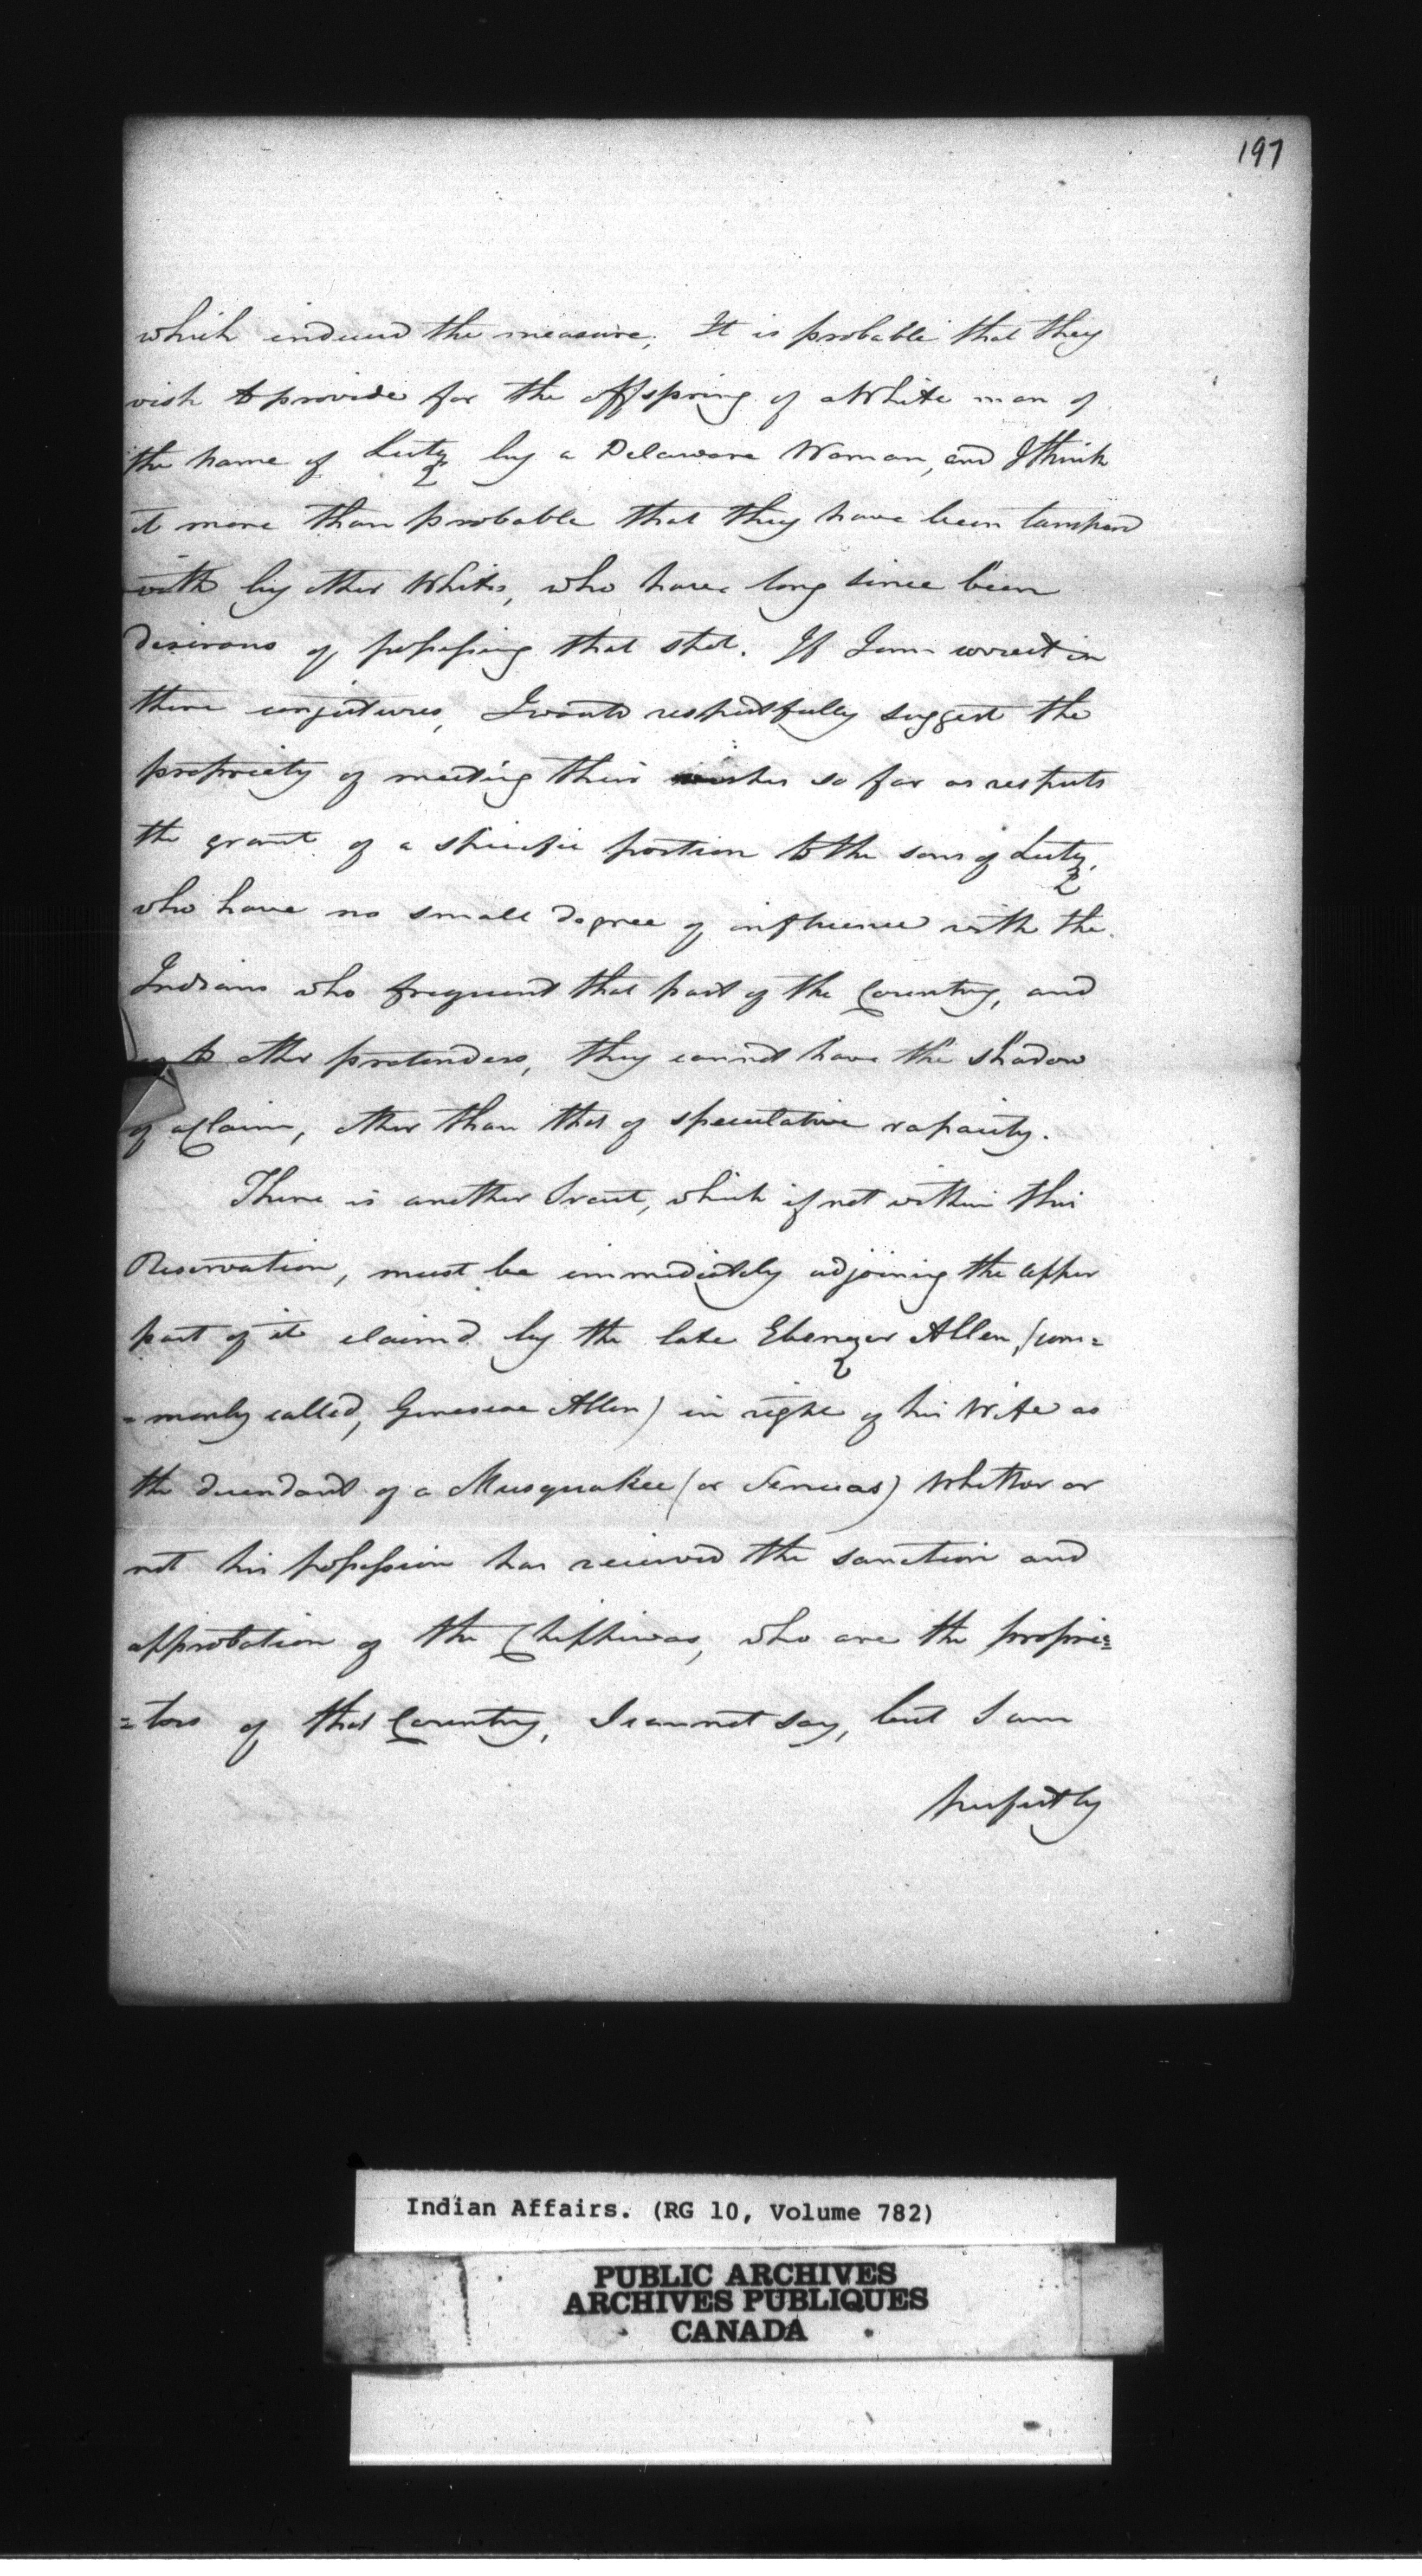 197
which induced the measure; It is probable that they
wish to provide for the offspring of a White man of
the name of by a Delaware Woman, and I think
it more than probable that they have been tamperd
with by other Whites, who have long since been
desirous of possessing that spot. If I am correct in
these conjectures, I would respectfully suggest the
propriety of meeting their wishes so far as respects
the grant of a specific portion to the sons of
who have no small degree of influence with the
Indians who frequent that part of the Country, and
as to other pretenders, they cannot have the shadow
of a Claim, other than that of speculative rapacity.
There is another Tract, which if not within this
Reservation, must be immediately adjoining the upper
part of it claim'd by the late Ebenezer Allen, (com=
=monly called, Genesee Allen) in right of his Wife as
the descendant of a Musquakee (or Senecas) Whether or
not his possession has received the sanction and
approbation of the Chippiwas, who are the proprie=
=tors of that Country, I cannot say, but I am
perfectly
Indian Affairs. (RG 10, Volume 782)
PUBLIC ARCHIVES
ARCHIVES PUBLIQUES
CANADA